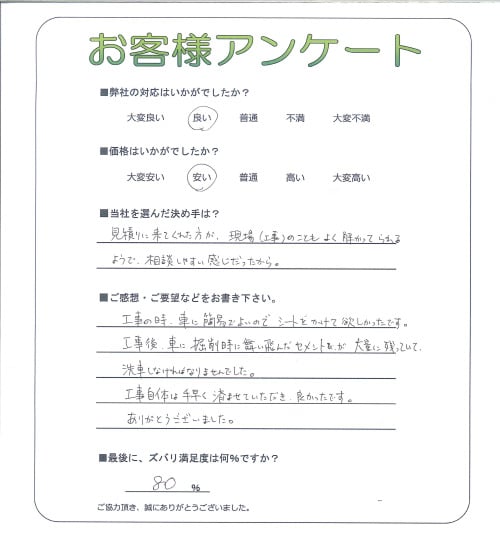 お客様アンケート
■弊社の対応はいかがでしたか？
大変良い 良い 普通 不満 大変不満
■価格はいかがでしたか？
大変安い 安い 普通 高い 大変高い
■当社を選んだ決め手は？
見積りに来てくれた方が、現場(工事)のこともよく解かってられる
ようで、相談しやすい感じだったから。
■ご感想・ご要望などをお書き下さい。
工事の時、車に簡易でよいのでシートをかけて欲しかったです。
工事後、車に掘削時に舞い飛んだセメントが大量に残っていて、
洗車しなければなりませんでした。
工事自体は手早く済ませていただき、良かったです。
ありがとうございました。
■最後に、ズバリ満足度は何%ですか？
80 %
ご協力頂き、誠にありがとうございました。